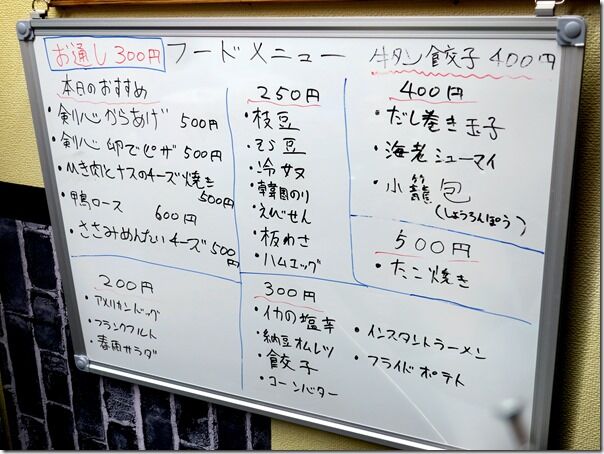 お通し 300円 フードメニュー 牛タン餃子 400円
本日のおすすめ
・剣リハンからあげ 500円
・剣リハン 卵でピザ 500円
・ひき肉とナスのチーズ焼き 500円
・鴨ロース 600円
・ささみめんたいチーズ 500円
250円
・枝豆
・そら豆
・冷奴
・韓国のり
・えびせん
・板わさ
・ハムエッグ
400円
・だし巻き玉子
・海老シューマイ
・小籠包
(しょうろんぽう)
500円
・たこ焼き
200円
・アメリカンドッグ
・フランクフルト
・春雨サラダ
300円
・イカの塩辛
・納豆オムレツ
・餃子
・コーンバター
・インスタントラーメン
・フライドポテト